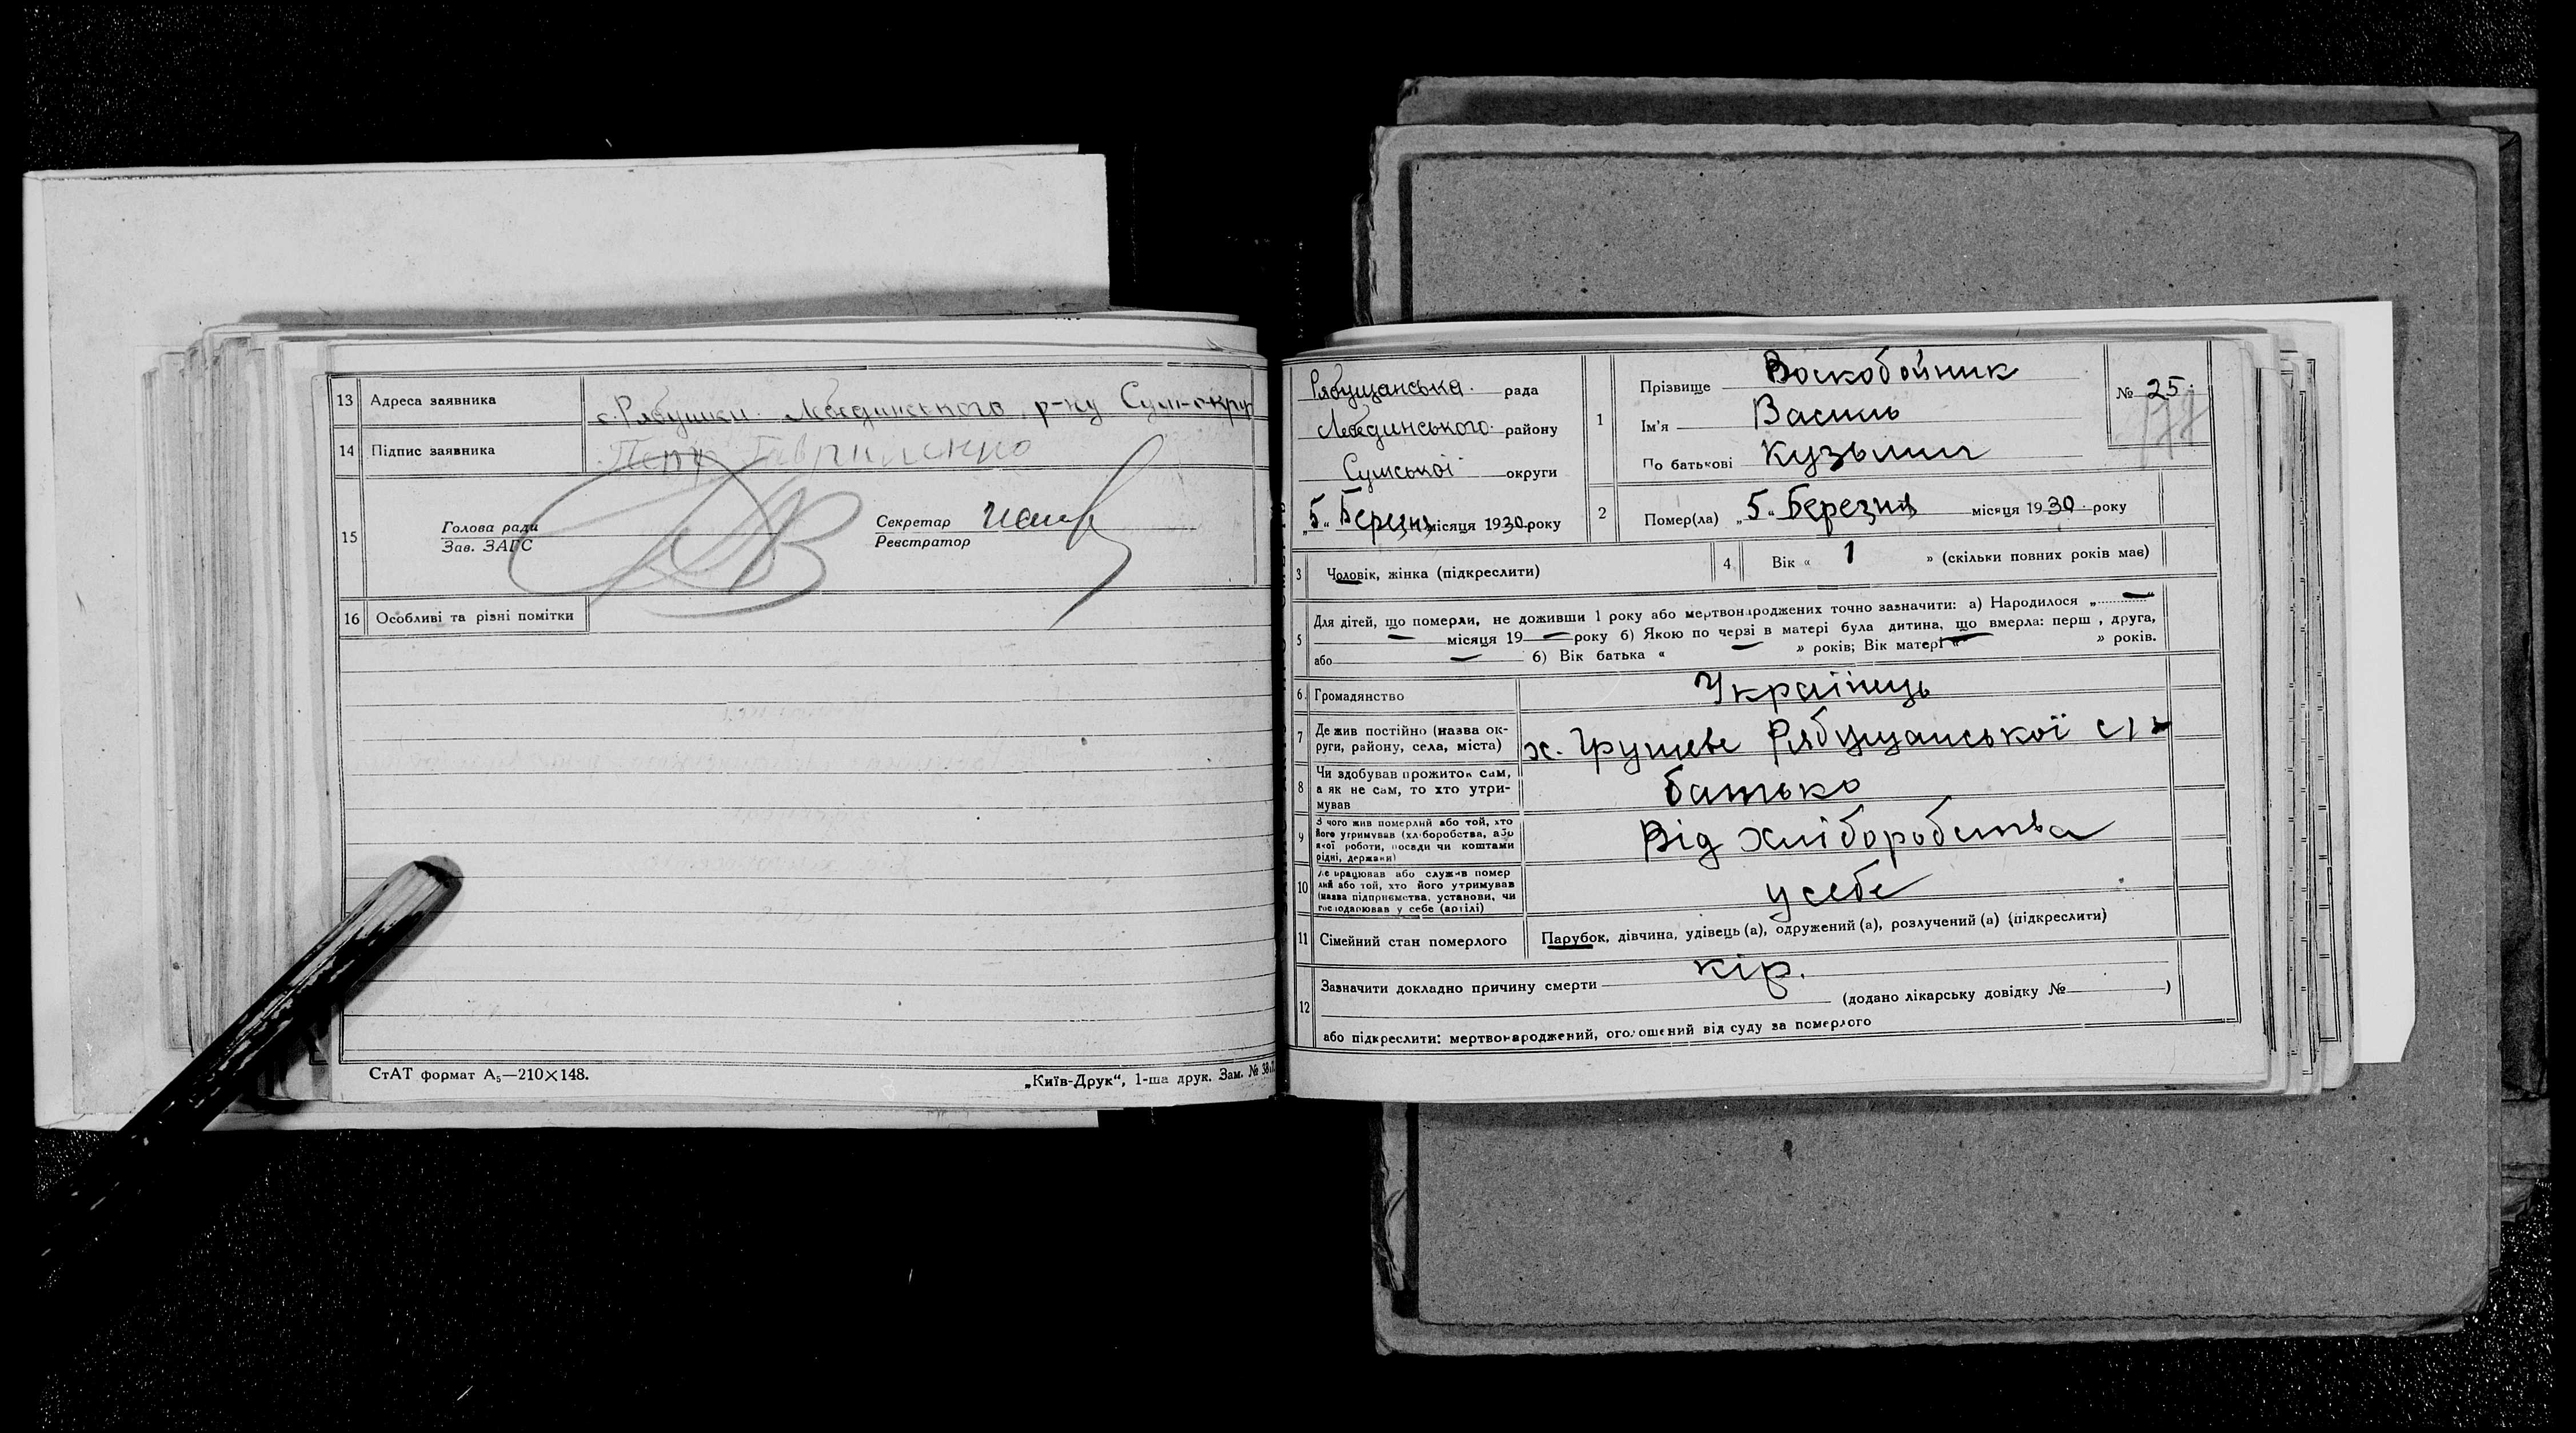 13 Адреса заявника с. Рябушки Лебединського р-ну Сум-окру
14 Підпис заявника Петр Гавриленко
15 Голова ради
Зав. ЗАГС
Секретар
Реєстратор
16 Особливі та різні помітки
СтАТ формат А₅—210×148.
„Київ-Друк“, 1-ша друк. Зам. №
Рябущанська рада
Лебединського району
Сумської округи
„5“ Березня місяця 1930 року
1 Прізвище Воскобойник
Ім'я Василь
По батькові Кузьмич
№ 25
2 Помер(ла) „5“ Березня місяця 1930 року
3 Чоловік, жінка (підкреслити)
4 Вік « 1 » (скільки повних років має)
5 Для дітей, що померли, не доживши 1 року або мертвонароджених точно зазначити: а) Народилося „—“
— місяця 19 — року б) Якою по черзі в матері була дитина, що вмерла: перш , друга,
або — б) Вік батька « — » років; Вік матері « — » років.
6. Громадянство Українець
7 Де жив постійно (назва ок-
руги, району, села, міста) х. Грушеве Рябущанської с/р
8 Чи здобував прожиток сам,
а як не сам, то хто утри-
мував батько
9 З чого жив померлий або той, хто
його утримував (хліборобства, або
якої роботи, посади чи коштами
рідні, держави) Від хліборобства
10 Де працював або служив помер
лий або той, хто його утримував
(назва підприємства, установи, чи
господарював у себе (артілі) у себе
11 Сімейний стан померлого Парубок, дівчина, удівець (а), одружений (а), розлучений (а) (підкреслити)
12 Зазначити докладно причину смерти кір.
(додано лікарську довідку № — )
або підкреслити: мертвонароджений, оголошений від суду за померлого